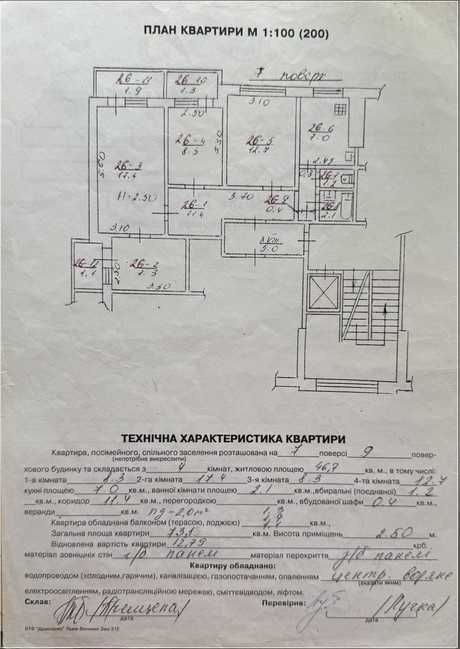 ПЛАН КВАРТИРИ М 1:100 (200)
7 поверх
26-11
1.9
26-10
1.3
2.50
3.10
26-3
17.4
26-4
8.3
26-5
12.7
26-6
7.0
H=2.50
26-1
11.4
3.70
0.4
3.10
3.0
26-2
8.3
1.1
3.50
ТЕХНІЧНА ХАРАКТЕРИСТИКА КВАРТИРИ
Квартира, посімейного, спільного заселення розташована на 7 поверсі 9 повер-
(непотрібне викреслити)
хового будинку та складається з 4 кімнат, житловою площею 46,7 кв. м., в тому числі:
1-а кімната 8.3 2-га кімната 17.4 3-я кімната 8.3 4-та кімната 12.7
кухні площею 7.0 кв.м., ванної кімнати площею 2.1 кв.м.,вбиральні (поєднаної) 1.2
кв.м., коридор 11.4 кв.м., перегородкою кв.м., вбудованої шафи 0.4 кв.м.,
веранди кв.м. 1.3
Квартира обладнана балконом (терасою, лоджією) кв.м.
Загальна площа квартири 73,1 кв.м. Висота приміщень 2.50 м.
Відновлена вартість квартири крб.
матеріал зовнішніх стін з/б панелі матеріал перекриття з/б панелі
Квартиру обладнано:
водопроводом (холодним,гарячим), каналізацією, газопостачанням, опаленням центр. водяне
(вказати яким)
електроосвітленням, радіотрансляційною мережею, сміттєвідводом, ліфтом.
Склав:
Перевірив:
дата
дата